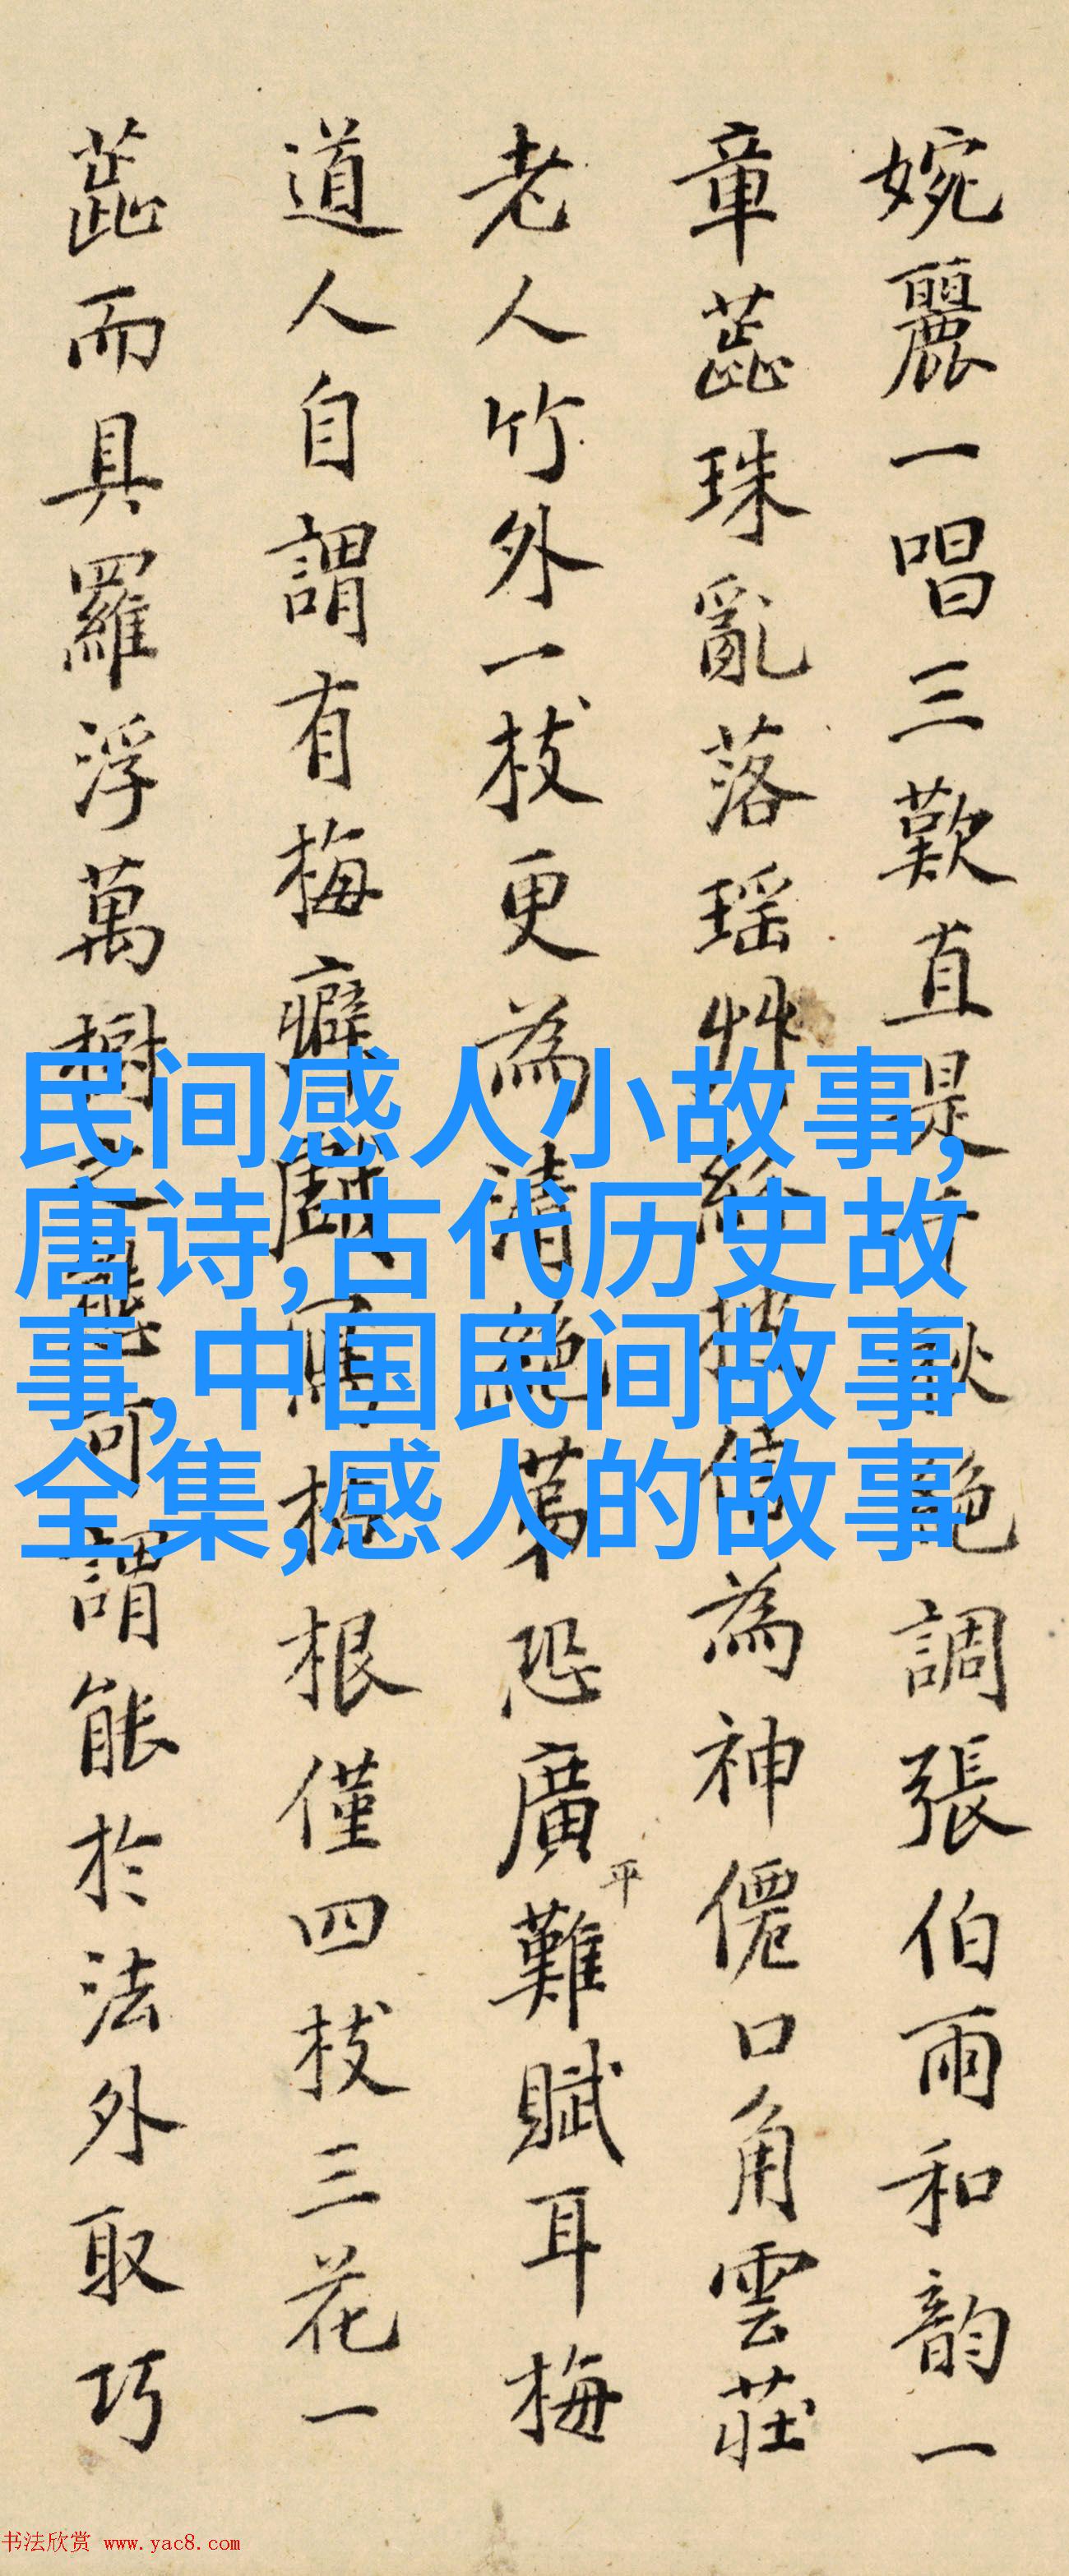 婉麗一唱三歎直是千秋絶調張伯雨和韵一
章蕋珠亂落瑶艸紛披信為神僊口角雲莊
老人竹外一枝更為清絶第恐廣平難賦耳梅
道人自謂有梅癖圖寫梅根僅四枝三花一
蕋而具羅浮萬樹之謂能於法外取巧
民间感人小故事,
唐诗,古代历史故
事,中国民间故事
全集,感人的故事
书法欣赏 www.yac8.com